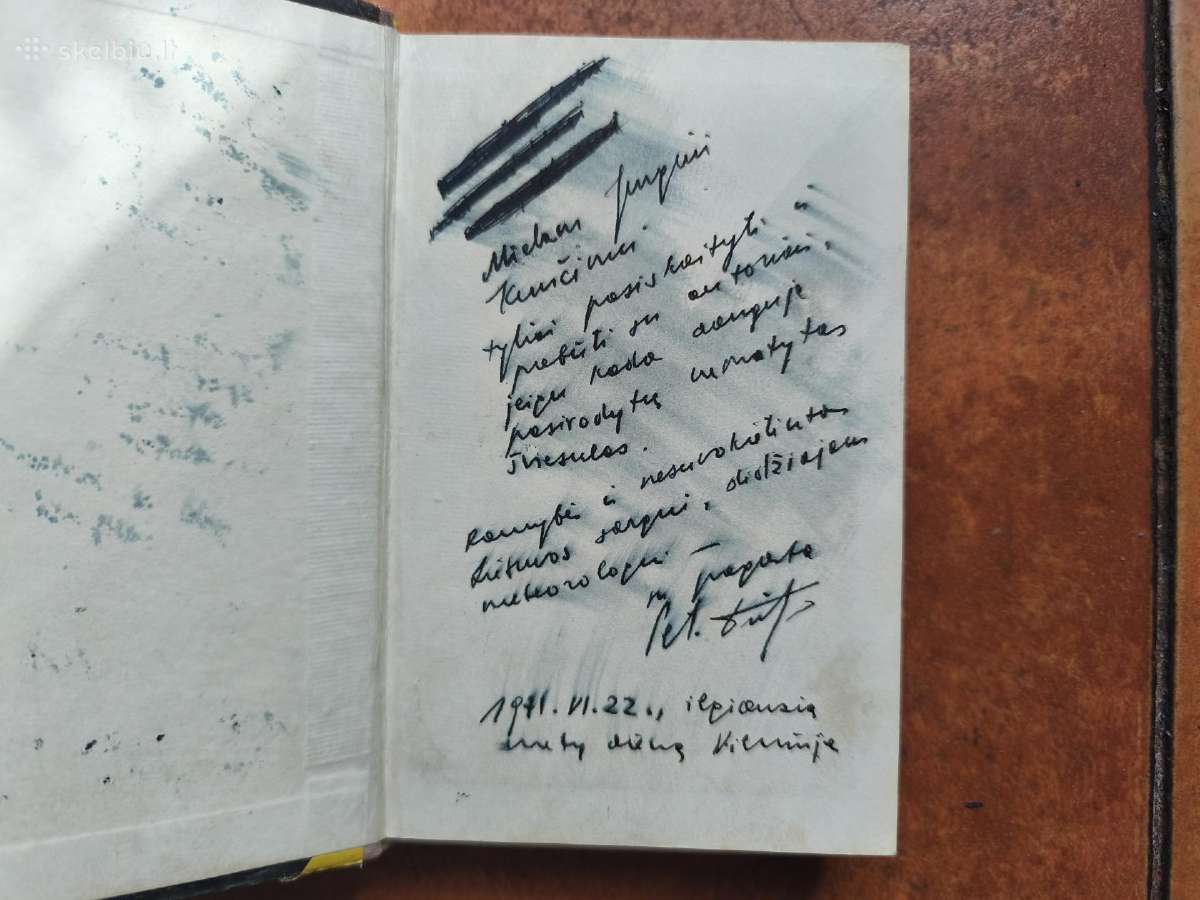 skelbiu.lt
Mielam Jurgiui
tyliai pasiskaityti ir
pabūti su autoriui,
jeigu kada danguje
pasirodytų nematytas
šviesulas.
Ramybės ir nesuvokiamos
Lietuvos sargui, didžiajam
meteorologui –
su pagarba
Pet.
1971.VI.22., ilgiausią
metų dieną Vilniuje